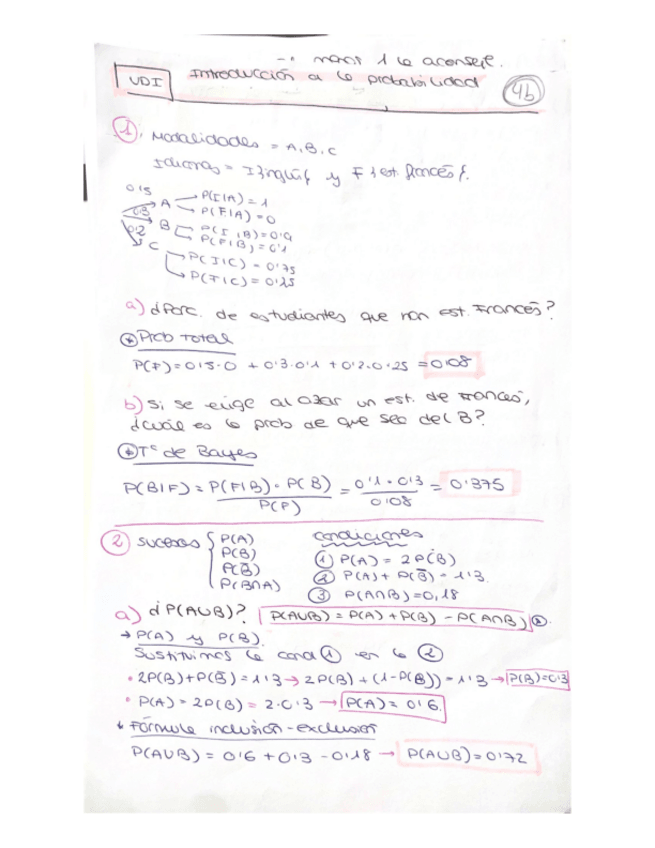 → nacs 1 le aconseje.
UDI Introducción a la probabilidad 4b
1 Modalidades = A, B, C
Idiomas = I}inglés{ y F}est. francés{.
0'5 A P(I|A) = 1
P(F|A) = 0
0'3 B P(I|B) = 0'9
P(F|B) = 0'1
0'2 C P(I|C) = 0'75
P(F|C) = 0'25
a) ¿Porc. de estudiantes que han est. Francés?
* Prob Total
P(F) = 0'5·0 + 0'3·0'1 + 0'2·0'25 = 0'08
b) Si se elige al azar un est. de Francés,
¿cuál es la prob de que sea del B?
* Tª de Bayes
P(B|F) = P(F|B)·P(B) / P(F) = 0'1·0'3 / 0'08 = 0'375
2 sucesos { P(A) P(B) P(B̅) P(B∩A)
condiciones
1 P(A) = 2P(B)
2 P(A) + P(B̅) = 1'3
3 P(A∩B) = 0,18
a) ¿P(A∪B)? P(A∪B) = P(A) + P(B) - P(A∩B) *.
→ P(A) y P(B).
Sustituimos la cond 1 en la 2
• 2P(B) + P(B̅) = 1'3 → 2P(B) + (1-P(B)) = 1'3 → P(B) = 0'3
• P(A) = 2P(B) = 2·0'3 → P(A) = 0'6.
↓ Fórmula inclusión-exclusión
P(A∪B) = 0'6 + 0'3 - 0'18 → P(A∪B) = 0'72